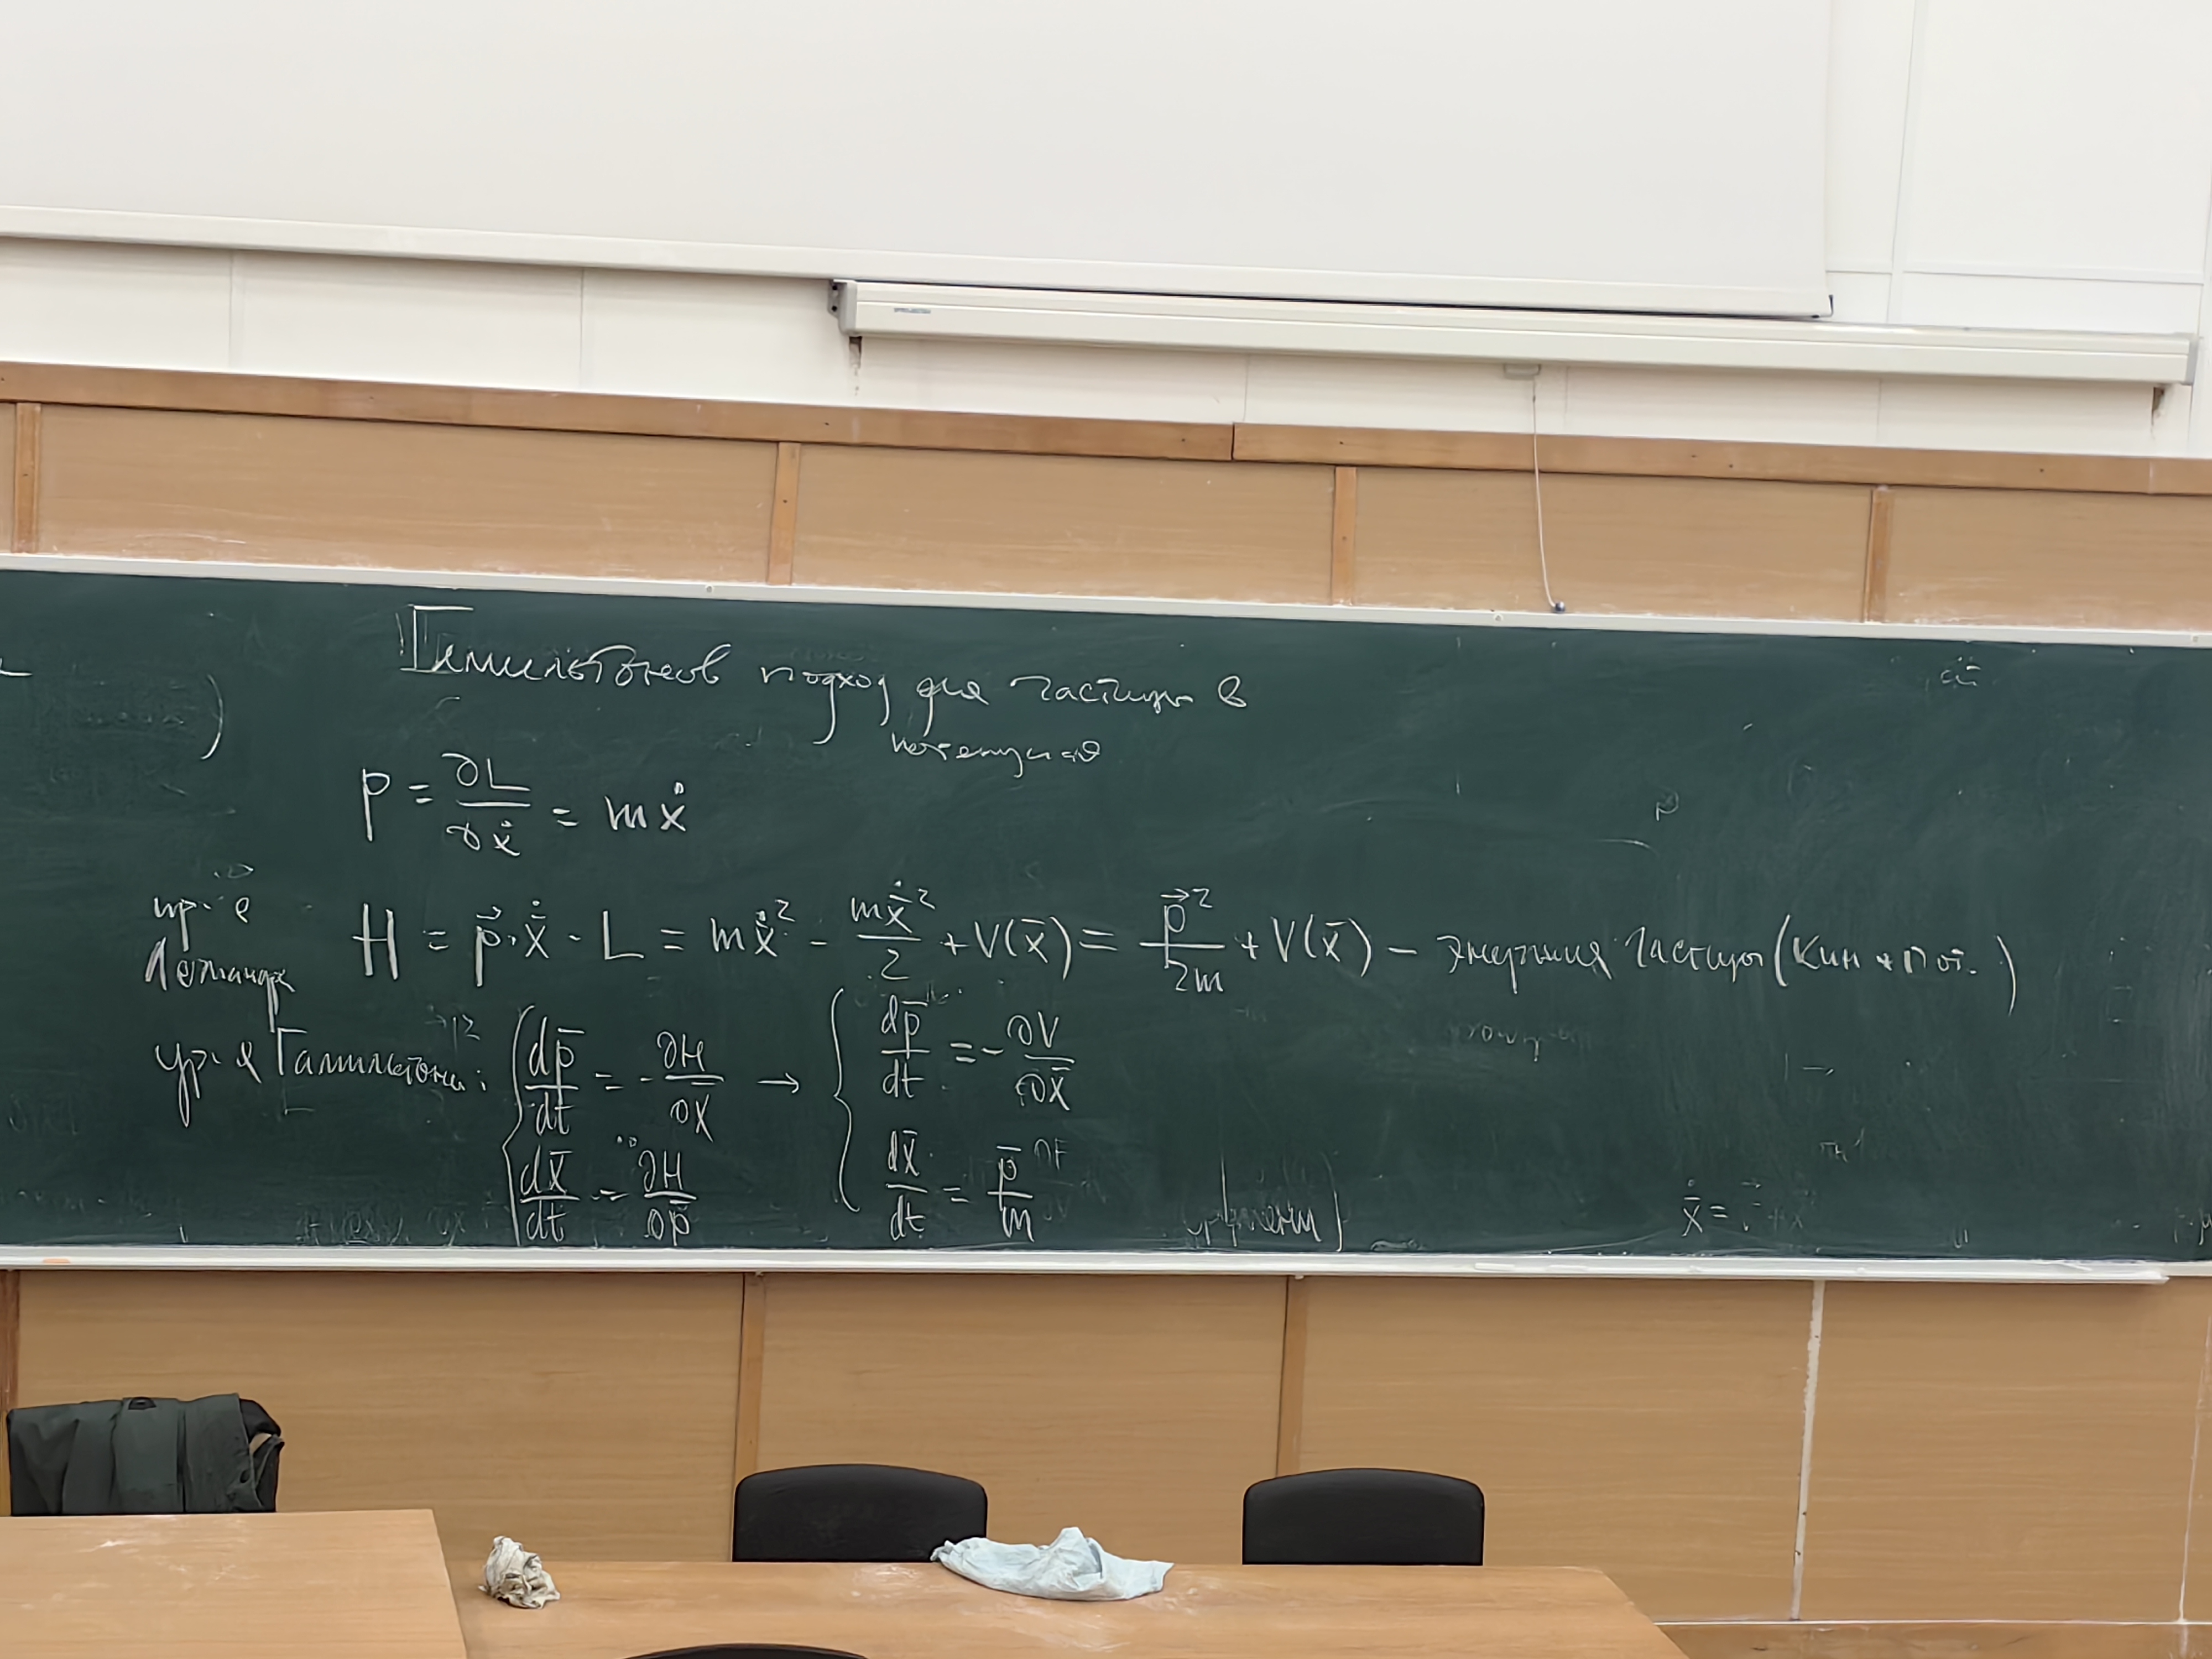 Гамильтонов подход для частицы в
потенциале
p = ∂L/∂ẋ = mẋ
пр-е
Лежандра
H = p⃗·ẋ̄ - L = mẋ̄² - mẋ̄²/2 + V(x̄) = p⃗²/2m + V(x̄) – энергия частицы (кин + пот.)
ур-я Гамильтона: { dp̄/dt = -∂H/∂x̄ → { dp̄/dt = -∂V/∂x̄
dx̄/dt = ∂H/∂p̄ dx̄/dt = p̄/m